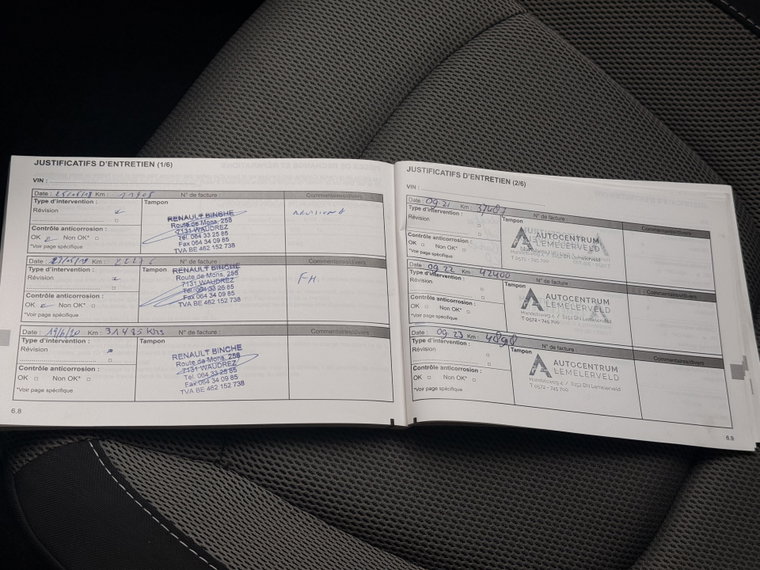 JUSTIFICATIFS D'ENTRETIEN (1/6)
VIN :
Date : Km : N° de facture : Commentaires/divers
Type d'intervention : Tampon
Révision
RENAULT BINCHE
Route de Mons, 258
7131 WAUDREZ
Tél. 064 33 25 85
Fax 064 34 09 85
TVA BE 462 152 738
Contrôle anticorrosion :
OK Non OK*
*Voir page spécifique
Date : Km : N° de facture : Commentaires/divers
Type d'intervention : Tampon
Révision
RENAULT BINCHE
Route de Mons, 258
7131 WAUDREZ
Tél. 064 33 25 85
Fax 064 34 09 85
TVA BE 462 152 738
FH
Contrôle anticorrosion :
OK Non OK*
*Voir page spécifique
Date : Km : 31485 N° de facture : Commentaires/divers
Type d'intervention : Tampon
Révision
RENAULT BINCHE
Route de Mons, 258
7131 WAUDREZ
Tél. 064 33 25 85
Fax 064 34 09 85
TVA BE 462 152 738
Contrôle anticorrosion :
OK Non OK*
*Voir page spécifique
6.8
JUSTIFICATIFS D'ENTRETIEN (2/6)
VIN :
Date : 09 21 Km : N° de facture : Commentaires/divers
Type d'intervention : Tampon
Révision
AUTOCENTRUM
LEMELERVELD
T 0572 - 745 700
Contrôle anticorrosion :
OK Non OK*
*Voir page spécifique
Date : 09 22 Km : 42400 N° de facture : Commentaires/divers
Type d'intervention : Tampon
Révision
AUTOCENTRUM
LEMELERVELD
T 0572 - 745 700
Contrôle anticorrosion :
OK Non OK*
*Voir page spécifique
Date : 09 23 Km : N° de facture : Commentaires/divers
Type d'intervention : Tampon
Révision
AUTOCENTRUM
LEMELERVELD
T 0572 - 745 700
Contrôle anticorrosion :
OK Non OK*
*Voir page spécifique
6.9